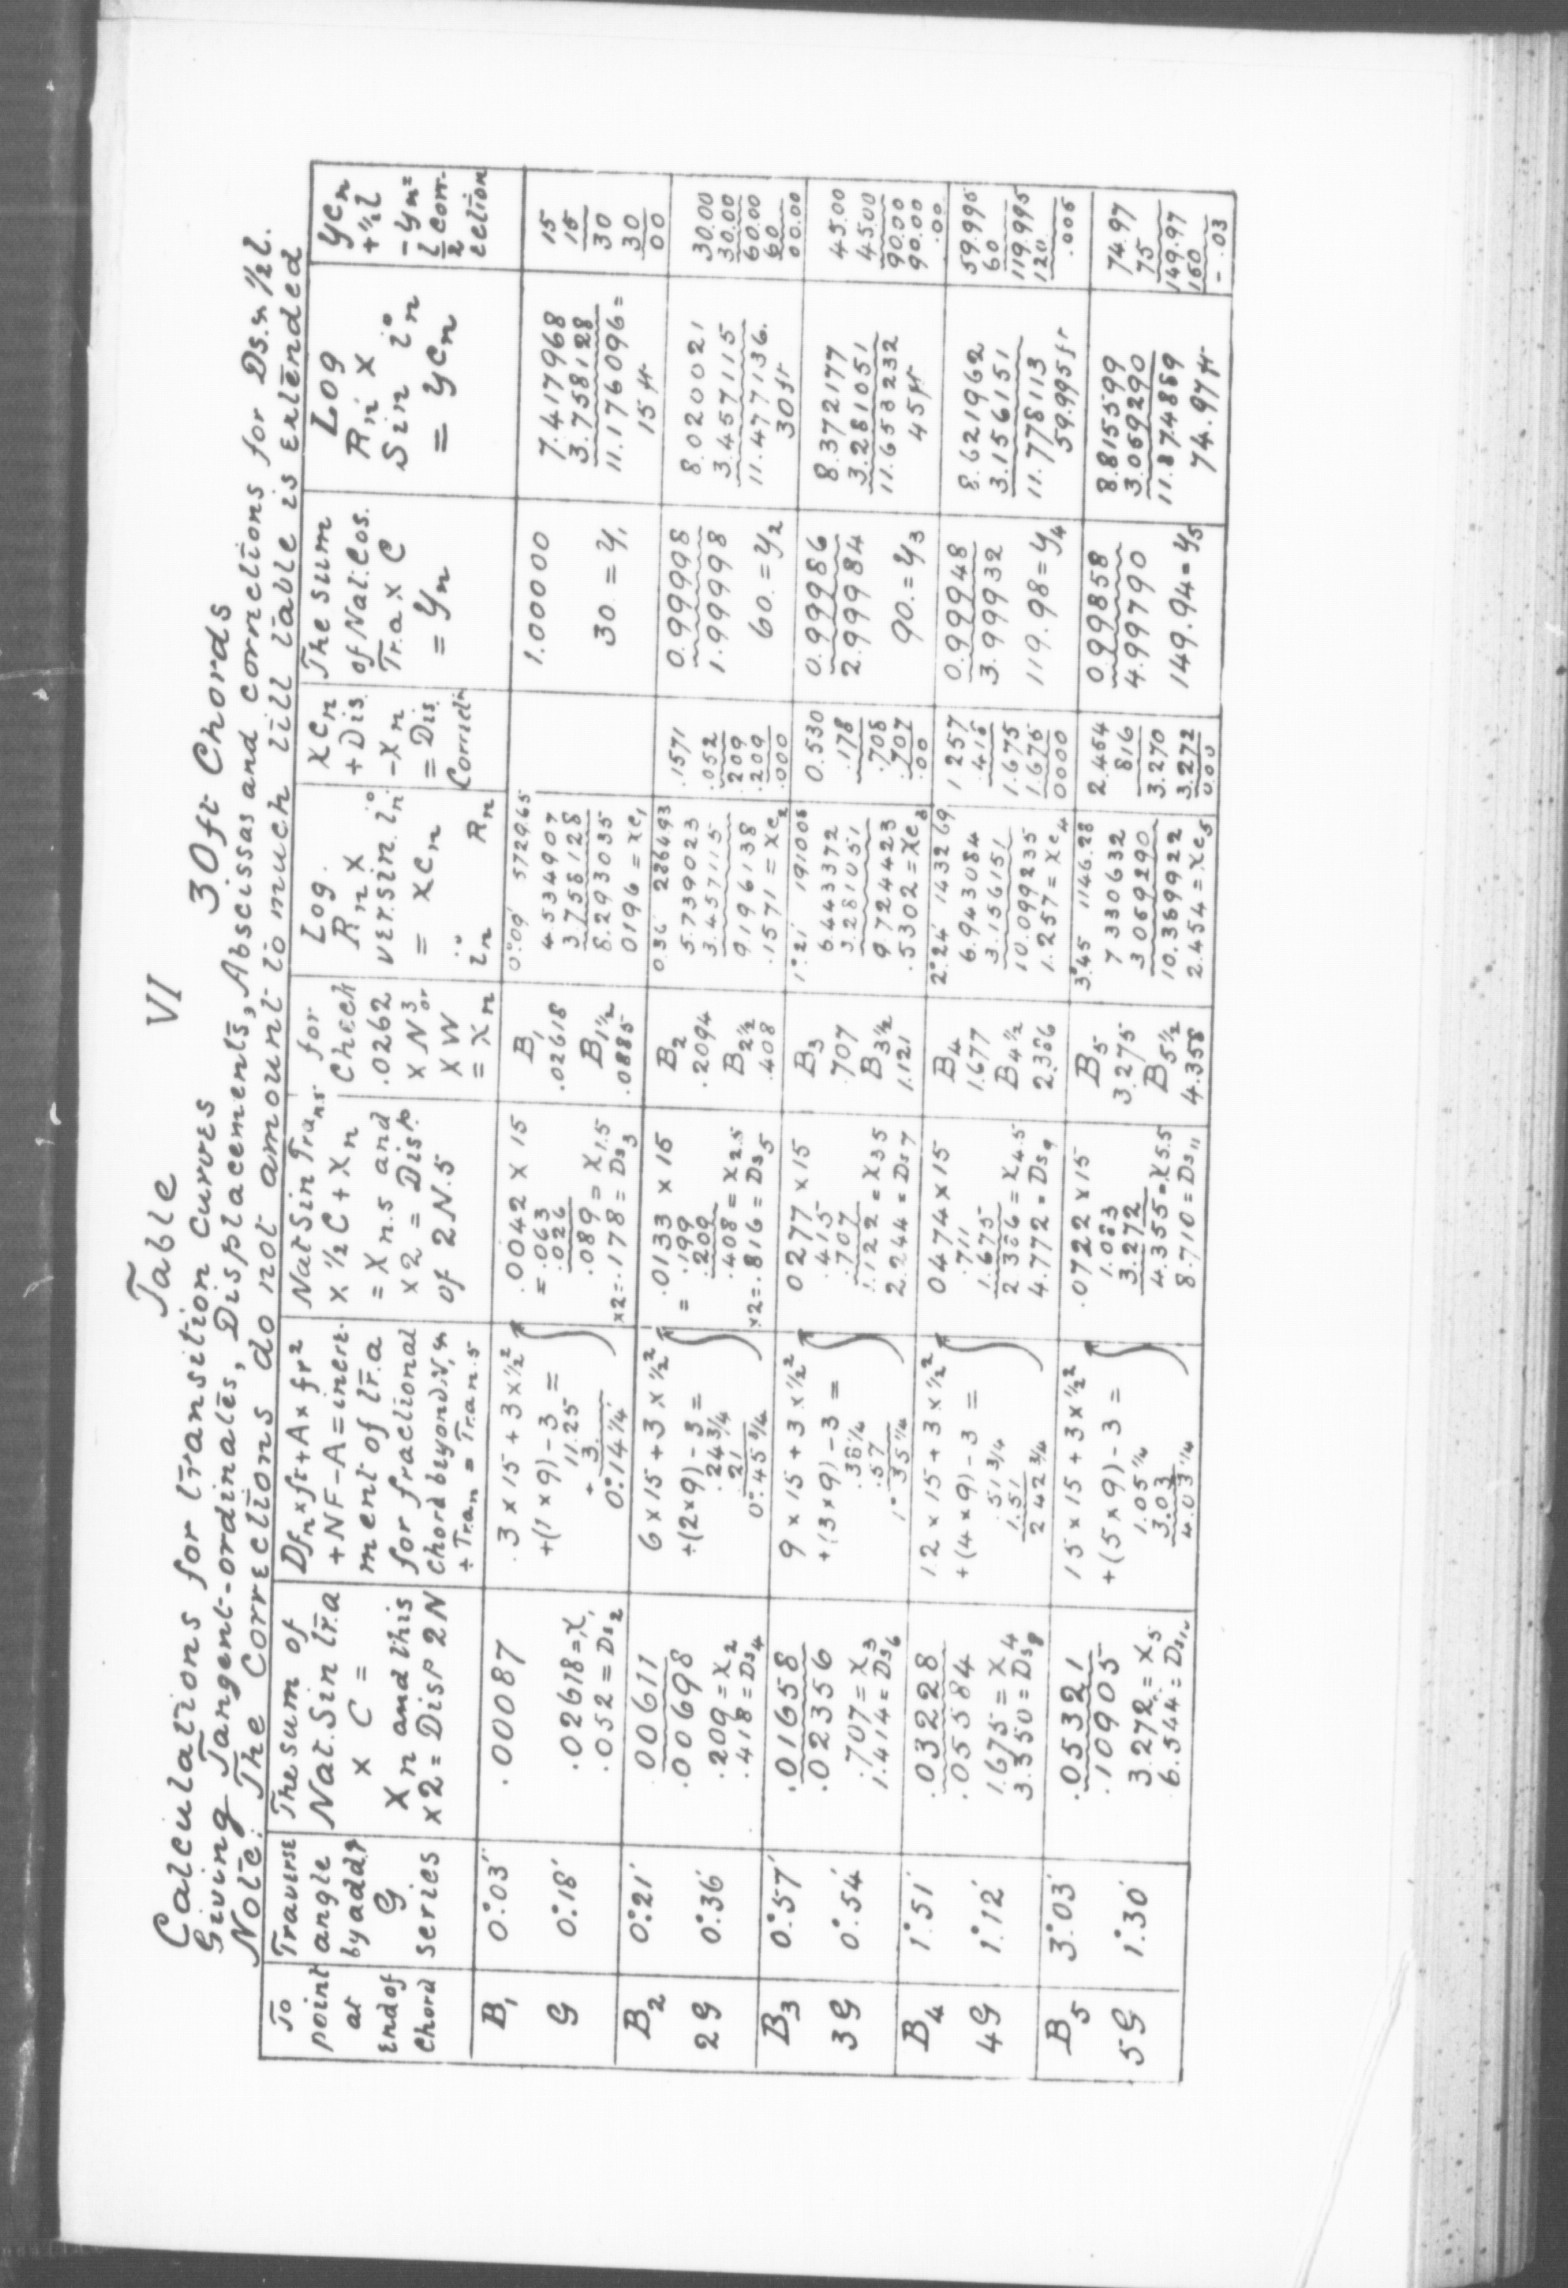 Table VI
Calculations for transition curves 30ft Chords
Giving Tangent-ordinates, Displacements, Abscissas and corrections for Ds. & ½ l.
Note: The Corrections do not amount to much till table is extended
To
point
at
end of
Chord
Traverse
angle
by addg
G
series
The sum of
Nat. Sin tr.a
x C =
Xn and this
x2 = Disp 2N
Dfn x ft + A x fr²
+ NF - A = incre-
ment of tr.a
for fractional
Chord beyond N, &
+ Tr.a n = Tr.a n.5
Nat Sin Tra n.5
x ½ C + Xn
= X n.5 and
x2 = Disp
of 2N.5
for
Check
.0262
x N³ or
x W
= Xn
Log.
Rn x
ver.sin. in°
= xcn
in° Rn
Xcn
+ Dis
- Xn
= Dis
Correctn
The sum
of Nat. Cos.
Tr.a x C
= Yn
Log
Rn x
Sin in°
= ycn
ycn
+ ½ l
- yn =
l/2 corr-
ection
B1
G
0°.03'
0°.18'
.00087
.02618 = X1
.052 = Ds2
.3 x 15 + 3 x ½²
+ (1 x 9) - 3 =
11.25
+ 3.
0°.14¼
.0042 x 15
= .063
.026
.089 = X1.5
x2 = .178 = Ds3
B1
.02618
B1½
.0885
0°.09' 57296.5
4.534907
3.758128
8.293035
0196 = xc1
1.00000
30. = Y1
7.417968
3.758128
11.176096 =
15 ft
15
15
30
30
00
B2
2G
0°.21'
0°.36'
.00611
.00698
.209 = X2
.418 = Ds4
6 x 15 + 3 x ½²
+ (2x9) - 3 =
.24¾
21
0°.45¾
.0133 x 15
= .199
.209
.408 = X2.5
x2 = .816 = Ds5
B2
.2094
B2½
.408
0.36' 286493
5.739023
3.457115
9.196138
.1571 = xc2
.1571
.052
209
.209
.000
0.99998
1.99998
60. = Y2
8.020021
3.457115
11.477136.
30ft
30.00
30.00
60.00
60
00.00
B3
3G
0°.57'
0°.54'
.01658
.02356
.707 = X3
1.414 = Ds6
9 x 15 + 3 x ½²
+ (3 x 9) - 3 =
.38¼
.57
1° 35¼
0277 x 15
.415
.707
1.122 = X3.5
2.244 = Ds7
B3
.707
B3½
1.121
1°.21' 191008
6.443372
3.281051
9.724423
.5302 = Xc3
0.530
.178
.708
.707
.00
0.99986
2.99984
90. = Y3
8.372177
3.281051
11.653232
45ft
45.00
45.00
90.00
90.00
.00
B4
4G
1°.51'
1°.12'
.03228
.05584
1.675 = X4
3.350 = Ds8
12 x 15 + 3 x ½²
+ (4 x 9) - 3 =
.51¾
1.51
2 42¾
0474 x 15
.711
1.675
2 386 = X4.5
4.772 = Ds9
B4
1.677
B4½
2.386
2°.24' 143269
6.943084
3.156151
10.099235
1.257 = Xc4
1 257
.418
1.675
1.675
0000
0.99948
3.99932
119.98 = Y4
8.621962
3.156151
11.778113
59.995ft
59.995
60
119.995
120.
.005
B5
5G
3°.03'
1°.30'
.05321
.10905
3.272 = X5
6.544 = Ds10
15 x 15 + 3 x ½²
+ (5 x 9) - 3 =
1.05¼
3.03
4.03¼
.0722 x 15
1.083
3.272
4.355 = X5.5
8.710 = Ds11
B5
3.275
B5½
4.358
3°.45 1146.28
7 330632
3 059290
10.389922
2.454 = Xc5
2.454
816
3.270
3.272
0.00
0.99858
4.99790
149.94 = Y5
8.815599
3.059290
11.874889
74.97ft
74.97
75
149.97
150
- .03